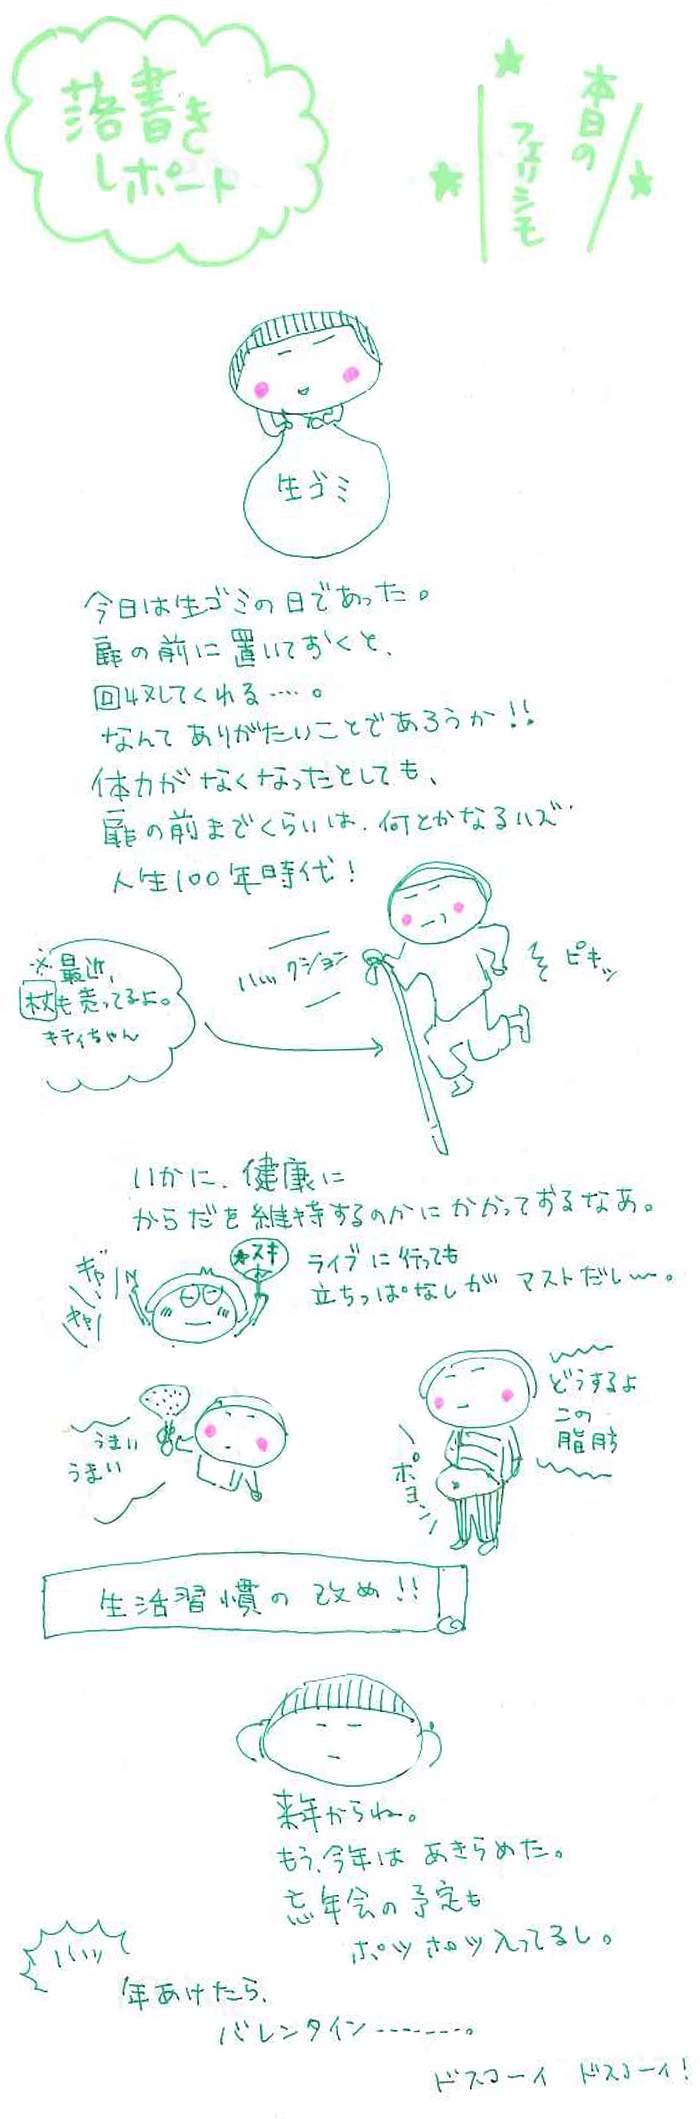 本日の
フェリシモ
落書き
レポート
生ゴミ
今日は生ゴミの日であった。
扉の前に置いておくと、
回収してくれる....。
なんてありがたいことであろうか!!
体力がなくなったとしても、
扉の前までくらいは、何とかなるハズ
人生100年時代!
※最近、
杖も売ってるよ。
キティちゃん
ハッ クション
そ ピキッ
いかに、健康に
からだを維持するのかにかかっておるなあ。
ギャー
キャー
★スキ
ライブに行っても
立ちっぱなしが マストだし〜。
うまい
うまい
どうするよ
この
脂肪
ポヨン
生活習慣の改め!!
来年からね。
もう、今年は あきらめた。
忘年会の予定も
ポツポツ入ってるし。
ハッ
年あけたら、
バレンタイン--------。
ドスコーイ ドスコーイ!